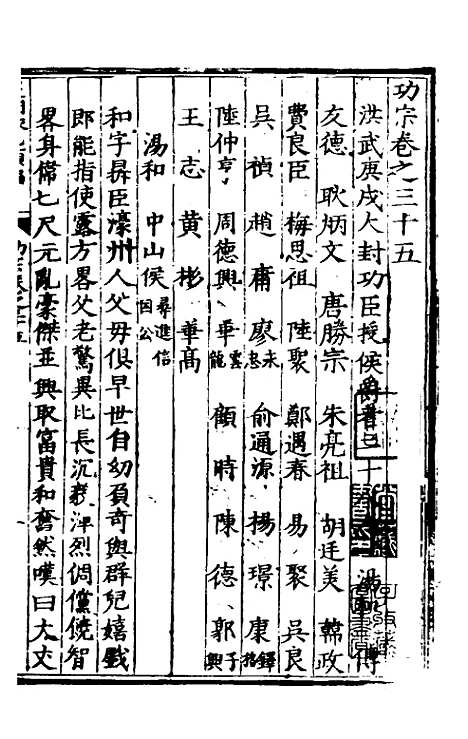 功宗卷之三十五
洪武庚戌大封功臣授侯爵者二十 湯 傅
友德 耿炳文 唐勝宗 朱亮祖 胡廷美 韓政
費良臣 梅思祖 陸聚 鄭遇春 易聚 吳良
吳禎 趙庸 廖永忠 俞通源 楊璟 康鐸指
陸仲亨 周德興 華雲龍 顧時 陳德 郭子興
王志 黃彬 華高
湯和 中山侯尋進信國公
和字鼎臣濠州人父母俱早世自幼負奇與群兒嬉戲
即能指使露方畧父老驚異比長沉毅洋烈倜儻饒智
畧身偹七尺元亂豪傑並興取富貴和奮然嘆曰大丈